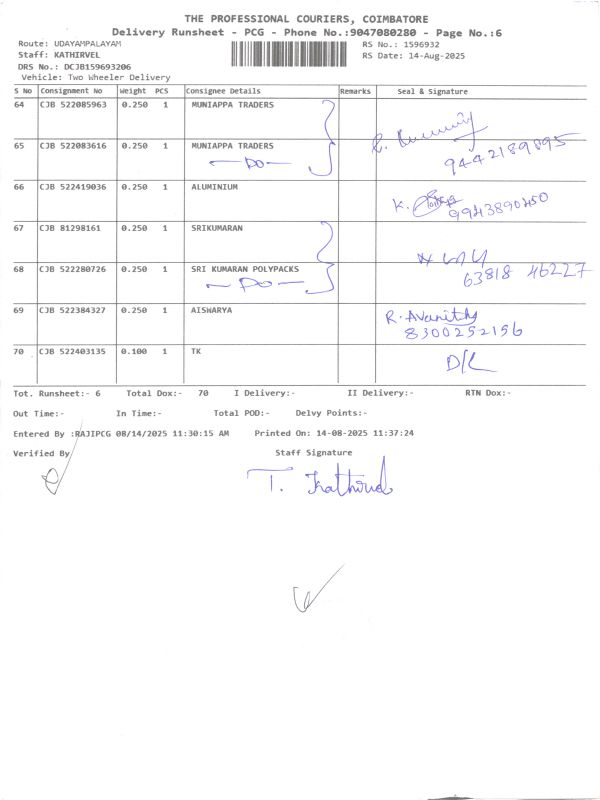 THE PROFESSIONAL COURIERS, COIMBATORE
Delivery Runsheet - PCG - Phone No.:9047080280 - Page No.:6
Route: UDAYAMPALAYAM
RS No.: 1596932
Staff: KATHIRVEL
RS Date: 14-Aug-2025
DRS No.: DCJB159693206
Vehicle: Two Wheeler Delivery
S No Consignment No Weight PCS Consignee Details Remarks Seal & Signature
64 CJB 522085963 0.250 1 MUNIAPPA TRADERS
65 CJB 522083616 0.250 1 MUNIAPPA TRADERS
DO
9442189895
66 CJB 522419036 0.250 1 ALUMINIUM
K.
9943890450
67 CJB 81298161 0.250 1 SRIKUMARAN
68 CJB 522280726 0.250 1 SRI KUMARAN POLYPACKS
DO
63818 46227
69 CJB 522384327 0.250 1 AISWARYA
R. Avanitha
8300252156
70 CJB 522403135 0.100 1 TK
D/L
Tot. Runsheet:- 6 Total Dox:- 70 I Delivery:- II Delivery:- RTN Dox:-
Out Time:- In Time:- Total POD:- Delvy Points:-
Entered By :RAJIPCG 08/14/2025 11:30:15 AM Printed On: 14-08-2025 11:37:24
Verified By Staff Signature
T. Kathirvel